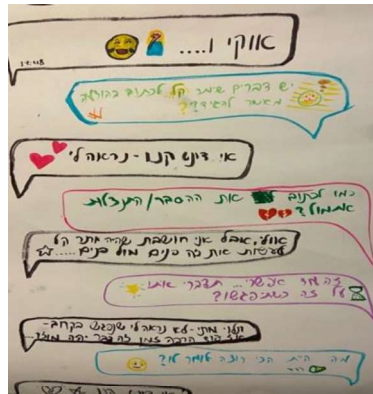 אווקי ו....
17:08
יש דברים שיותר קל לכתוב בהודעה
מאשר להגיד??
אי דינט קנו - נראה לי
כמו לכתוב את ההסבר/התנצלות
אתמול?
אוליי, אבל אני חושבת שהיה יותר קל
לעשות את זה פנים מול פנים.....
זה עוד אפשרי... תדברי איתו
על זה כשתיפגשו?
תלוי מתי - לא נראה לי שניפגש בקרוב -
ואז הרבה זמן זה כבר יהיה מוזר
מה היית הכי רוצה לומר לו?